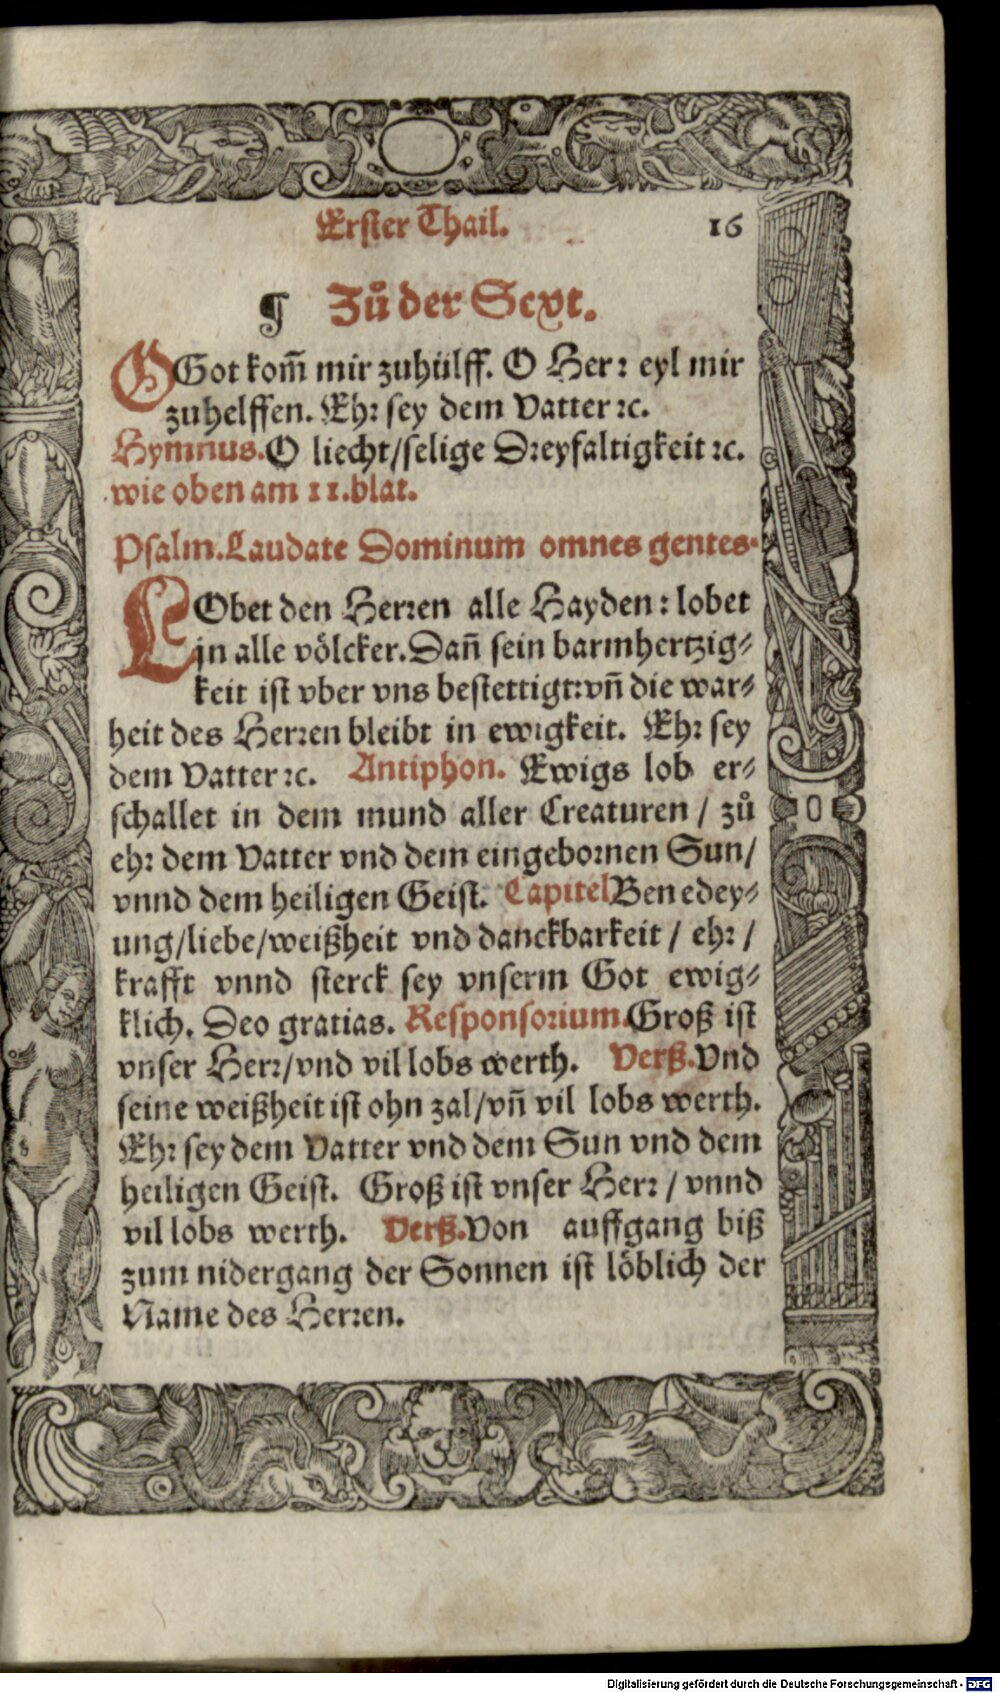 Erster Thail. 16
¶ Zů der Sext.
OGot kom̃ mir zuhülff. O Herꝛ eyl mir
zuhelffen. Ehꝛ sey dem Vatter ꝛc.
Hymnus. O liecht/selige Dꝛeyfaltigkeit ꝛc.
wie oben am 11. blat.
Psalm. Laudate Dominum omnes gentes.
LObet den Herꝛen alle Hayden: lobet
jn alle völcker. Dañ sein barmhertzig⸗
keit ist vber vns bestettigt: vñ die war⸗
heit des Herꝛen bleibt in ewigkeit. Ehꝛ sey
dem Vatter ꝛc. Antiphon. Ewigs lob er⸗
schallet in dem mund aller Creaturen / zů
ehꝛ dem Vatter vnd dem eingeboꝛnen Sun/
vnnd dem heiligen Geist. Capitel Benedey⸗
ung/liebe/weißheit vnd danckbarkeit / ehꝛ /
krafft vnnd sterck sey vnserm Got ewig⸗
klich. Deo gratias. Responsoꝛium. Groß ist
vnser Herꝛ/vnd vil lobs werth. Verß. Vnd
seine weißheit ist ohn zal/vñ vil lobs werth.
Ehꝛ sey dem Vatter vnd dem Sun vnd dem
heiligen Geist. Groß ist vnser Herꝛ / vnnd
vil lobs werth. Verß. Von auffgang biß
zum nidergang der Sonnen ist löblich der
Name des Herꝛen.
Digitalisierung gefördert durch die Deutsche Forschungsgemeinschaft - DFG